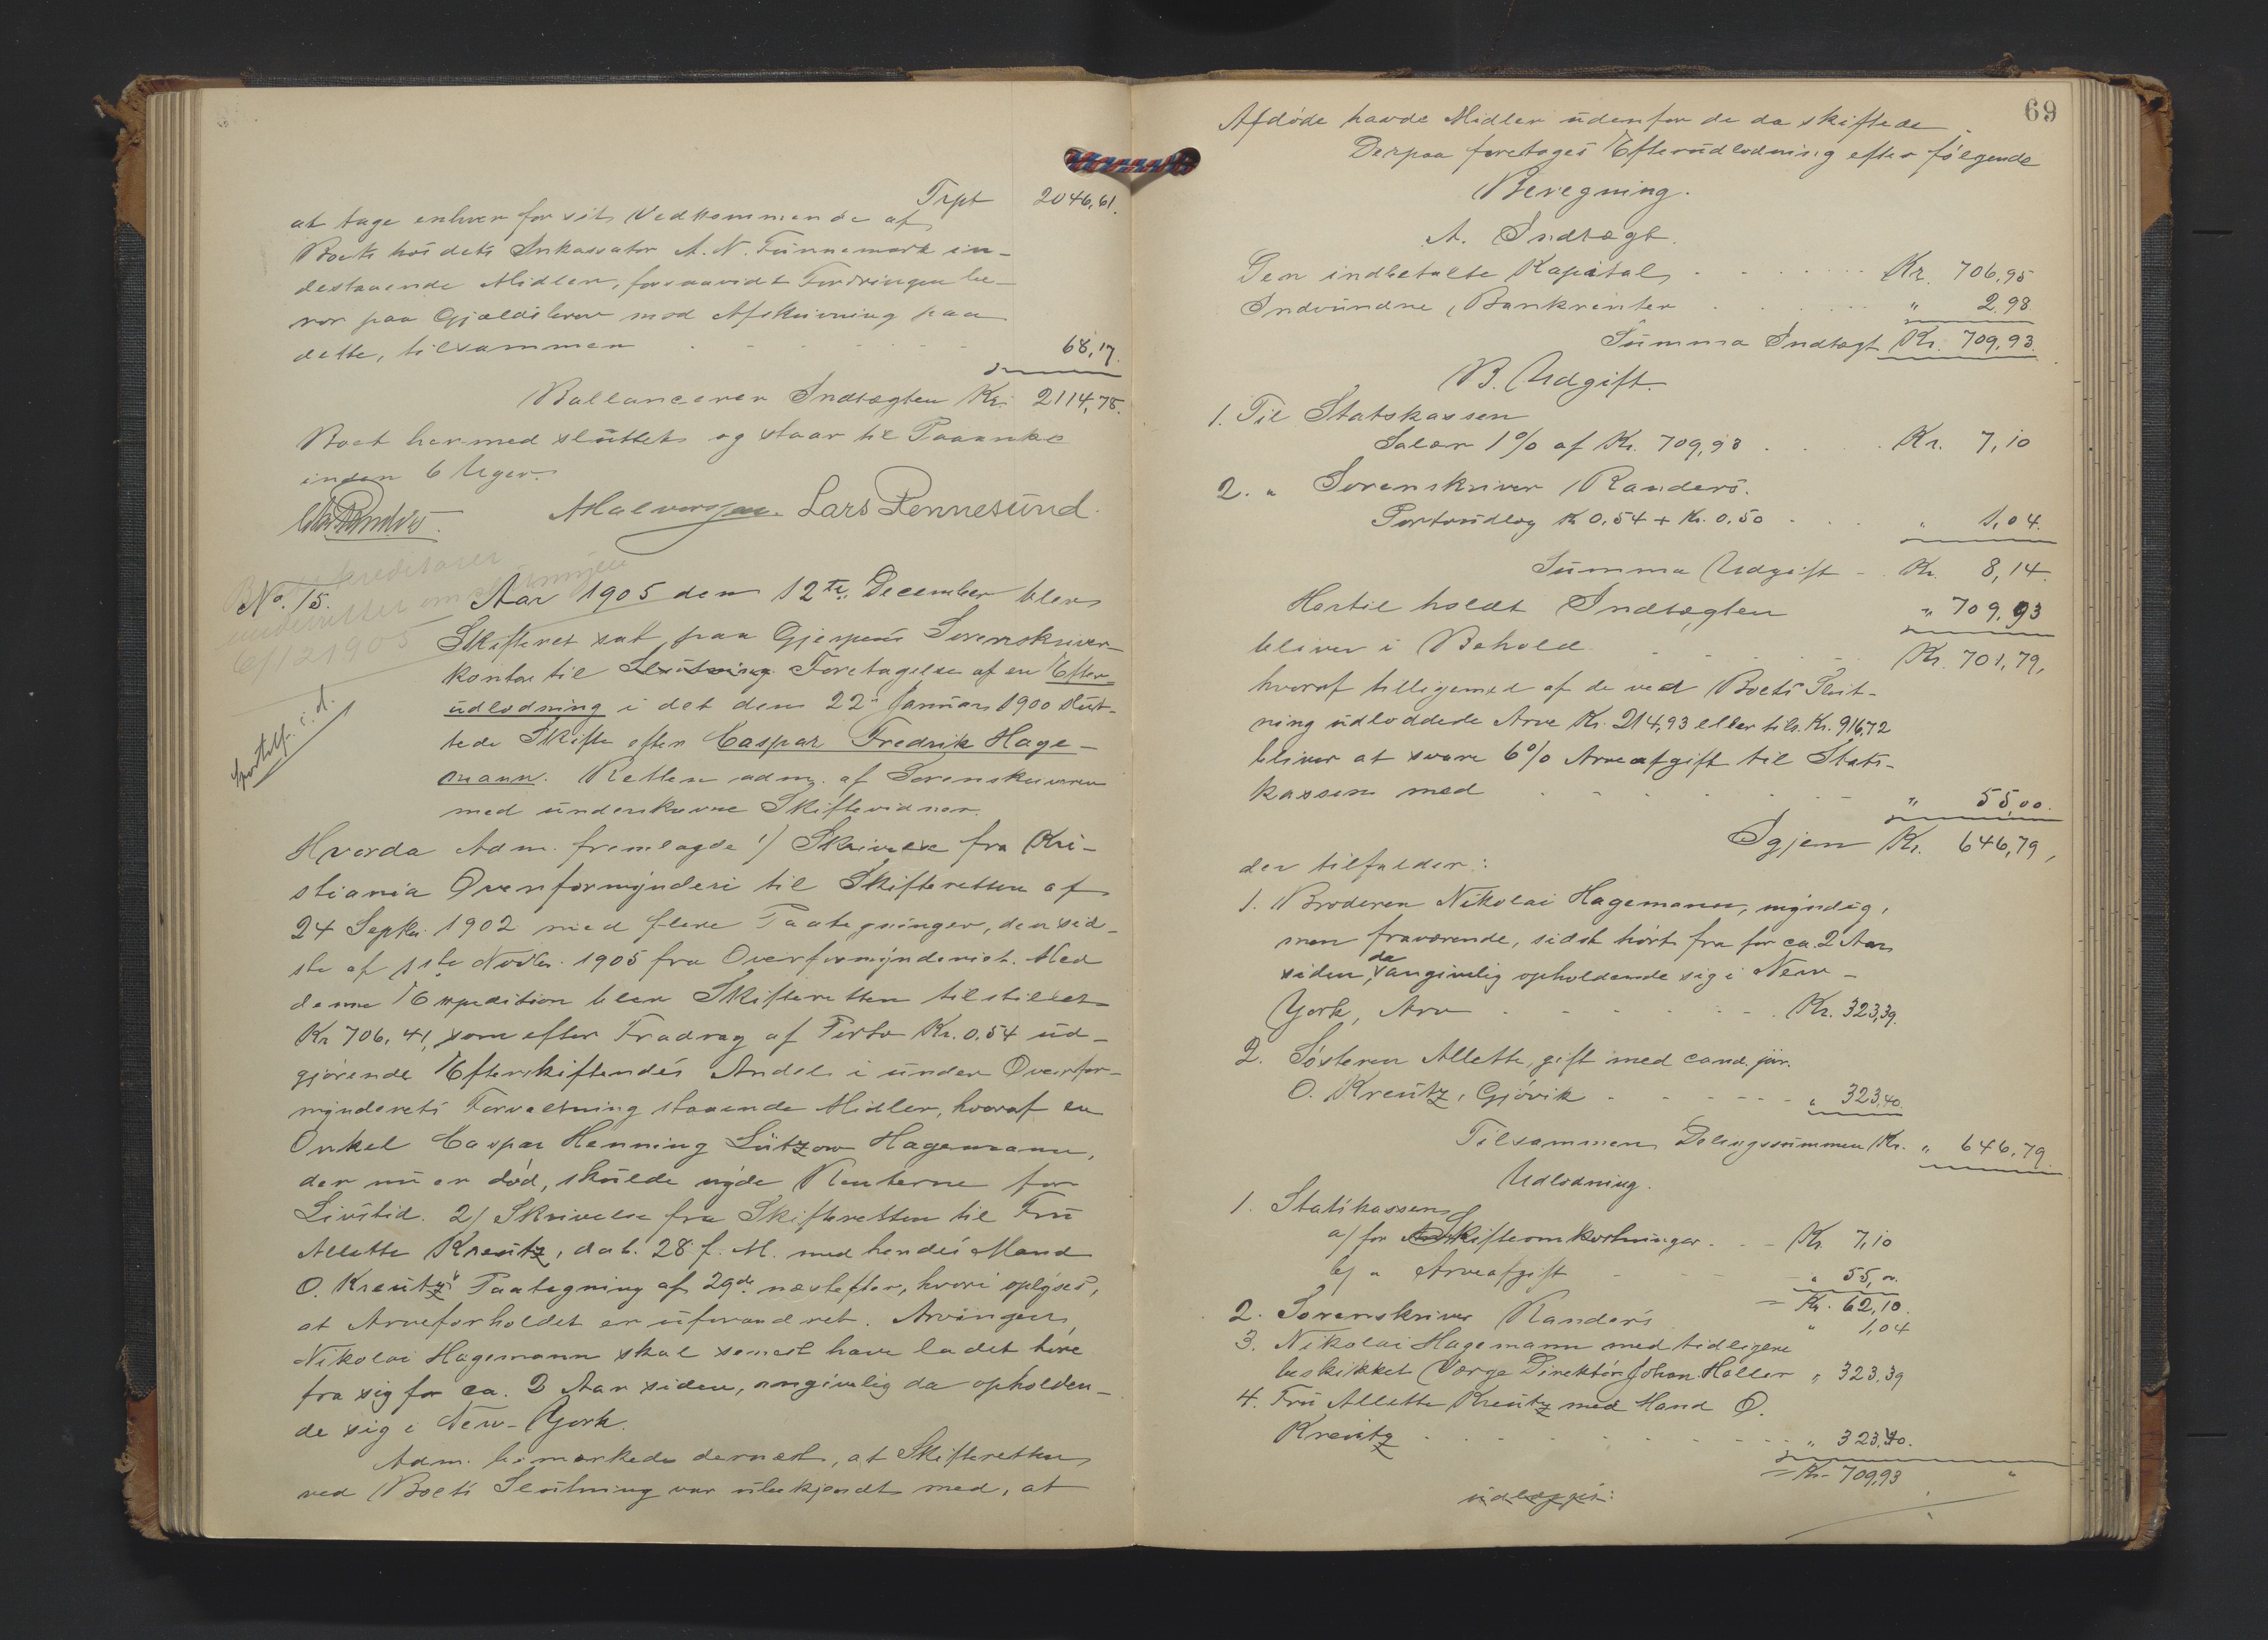 Trpt 2046,61.
at tage enhver for sit Vedkommende af
Boets hos dets Inkassator A. N. Funnemark in-
destaaende Midler, forsaavidt Fordringen be-
ror paa Gjældsbrev mod Afskrivning paa
dette, tilsammen 68,17.
Ballancerer Indtægten Kr. 2114,78.
Boet hermed sluttet og staar til Paaanke
inden 6 Uger.
Chr. Randers. AHalvorsen. Lars Pennesund.
No. 15. Aar 1905 den 12te December blev
Skifteret sat paa Gjerpens Sorenskriver-
kontor til Slutning Foretagelse af en Efter-
udlodning i det den 22. Januar 1900 slut-
tede Skifte efter Caspar Fredrik Hage-
mann. Retten adm. af Sorenskriveren
med underskrevne Skiftevidner.
Hvorda Adm. fremlagde 1) Skrivelse fra Kri-
stiania Overformynderi til Skifteretten af
24 Septbr. 1902 med flere Paategninger, den sid-
ste af 1ste Novbr. 1905 fra Overformynderiet. Med
denne Expedition blev Skifteretten tilstillet
Kr 706,41, som efter Fradrag af Porto Kr. 0,54 ud-
gjørende Efterskiftendes Andel i under Overfor-
mynderiets Forvaltning staaende Midler, hvoraf en
Onkel Caspar Henning Lützow Hagemann,
der nu er død, skulde nyde Renterne for
Livstid. 2) Skrivelse fra Skifteretten til Fru
Allette Kreutz, dat. 28 f. M. med hendes Mand
O. Kreutz's Paategning af 29de næstefter, hvori oplyses,
at Arveforholdet er uforandret. Arvingen,
Nikolai Hagemann skal senest have ladet høre
fra sig for ca. 2 Aar siden, angivelig da opholden-
de sig i New-York.
Adm. bemærkede dernæst, at Skifteretten
ved Boets Slutning var ubekjendt med, at
69
Afdøde havde Midler udenfor de da skiftede.
Derpaa foretoges Efterudlodning efter følgende
Beregning.
A. Indtægt.
Den indbetalte Kapital Kr. 706,95
Indvundne Bankrenter " 2,98.
Summa Indtægt Kr. 709,93.
B. Udgift.
1. Til Statskassen
Salær 1% af Kr. 709,93 Kr. 7,10
2. " Sorenskriver Randers.
Portoudlæg Kr 0,54 + Kr. 0,50 " 1,04.
Summa Udgift Kr. 8,14.
Hertil holdt Indtægten " 709,93
bliver i Behold Kr. 701,79,
hvoraf tilligemed af de ved Boets Slut-
ning udloddede Arve Kr. 214,93 eller tils. Kr. 916,72
bliver at svare 6% Arveafgift til Stats-
kassen med " 55,00.
Igjen Kr. 646,79,
der tilfalder:
1. Broderen Nikolai Hagemann, myndig,
men fraværende, sidst hørt fra for ca. 2 Aar
siden, da angivelig opholdende sig i New-
York, Arv Kr. 323,39.
2. Søsteren Allette, gift med cand. jur.
O. Kreutz, Gjøvik " 323,40.
Tilsammen Delingssummen Kr. " 646,79.
Udlodning.
1. Statskassen
a) for Skifteomkostninger Kr. 7,10
b) " Arveafgift " 55,00.
= Kr. 62,10.
2. Sorenskriver Randers " 1,04
3. Nikolai Hagemann med tidligere
beskikket Værge Direktør Johan Høller " 323,39
4. Fru Allette Kreutz med Mand O.
Kreutz " 323,40.
= Kr. 709,93
udlægges: